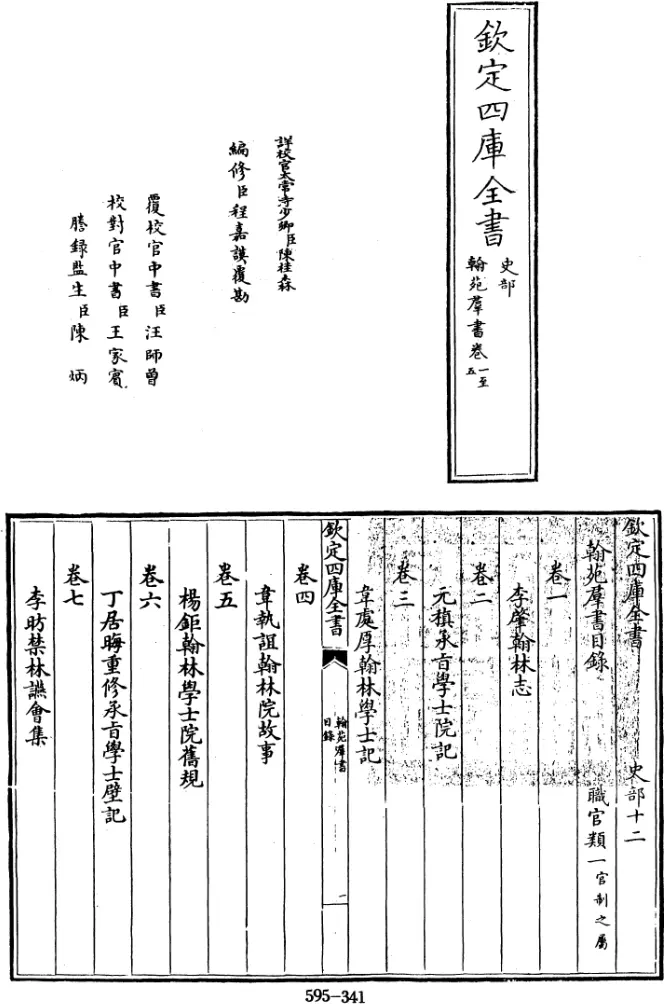 欽定四庫全書
史部
翰苑羣書卷一至五
詳校官太常寺少卿臣陳桂森
編修臣程嘉謨覆勘
覆校官中書臣汪師曾
校對官中書臣王家賓
謄録監生臣陳炳
欽定四庫全書 史部十二
翰苑羣書目錄 職官類一官制之屬
卷一
李肇翰林志
卷二
元稹承旨學士院記
卷三
韋處厚翰林學士記
欽定四庫全書
翰苑羣書
目錄
一
卷四
韋執誼翰林院故事
卷五
楊鉅翰林學士院舊規
卷六
丁居晦重修承旨學士壁記
卷七
李昉禁林讌會集
595-341